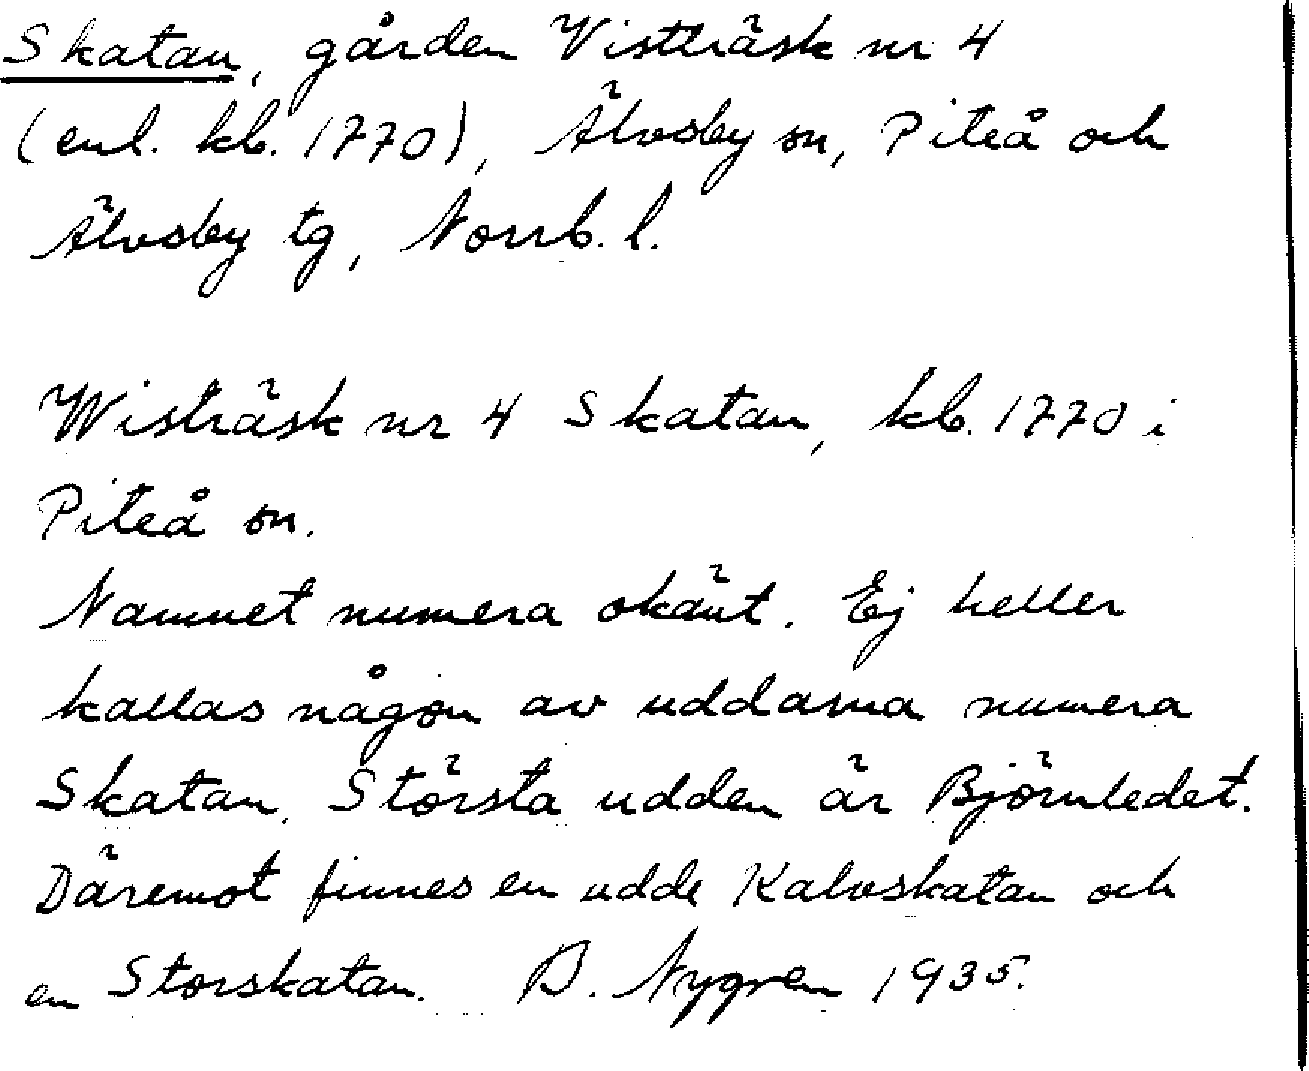 Skatan, gården Visträsk nr 4
(enl. kb. 1770), Älvsby sn, Piteå och
Älvsby tg, Norrb. l.
Wisträsk nr 4 Skatan, kb. 1770 i
Piteå sn.
Namnet numera okänt. Ej heller
kallas någon av uddarna numera
Skatan. Största udden är Björnledet.
Däremot finnes en udde Kalvskatan och
en Storskatan. B. Nygren 1935.